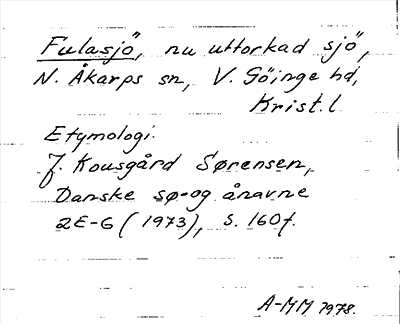 Fulasjö, nu uttorkad sjö,
N. Åkarps sn, V. Göinge hd,
Krist. l
Etymologi:
J. Kousgård Sørensen,
Danske sø- og ånavne
2E-G (1973), s. 160f.
A-MM 1978.